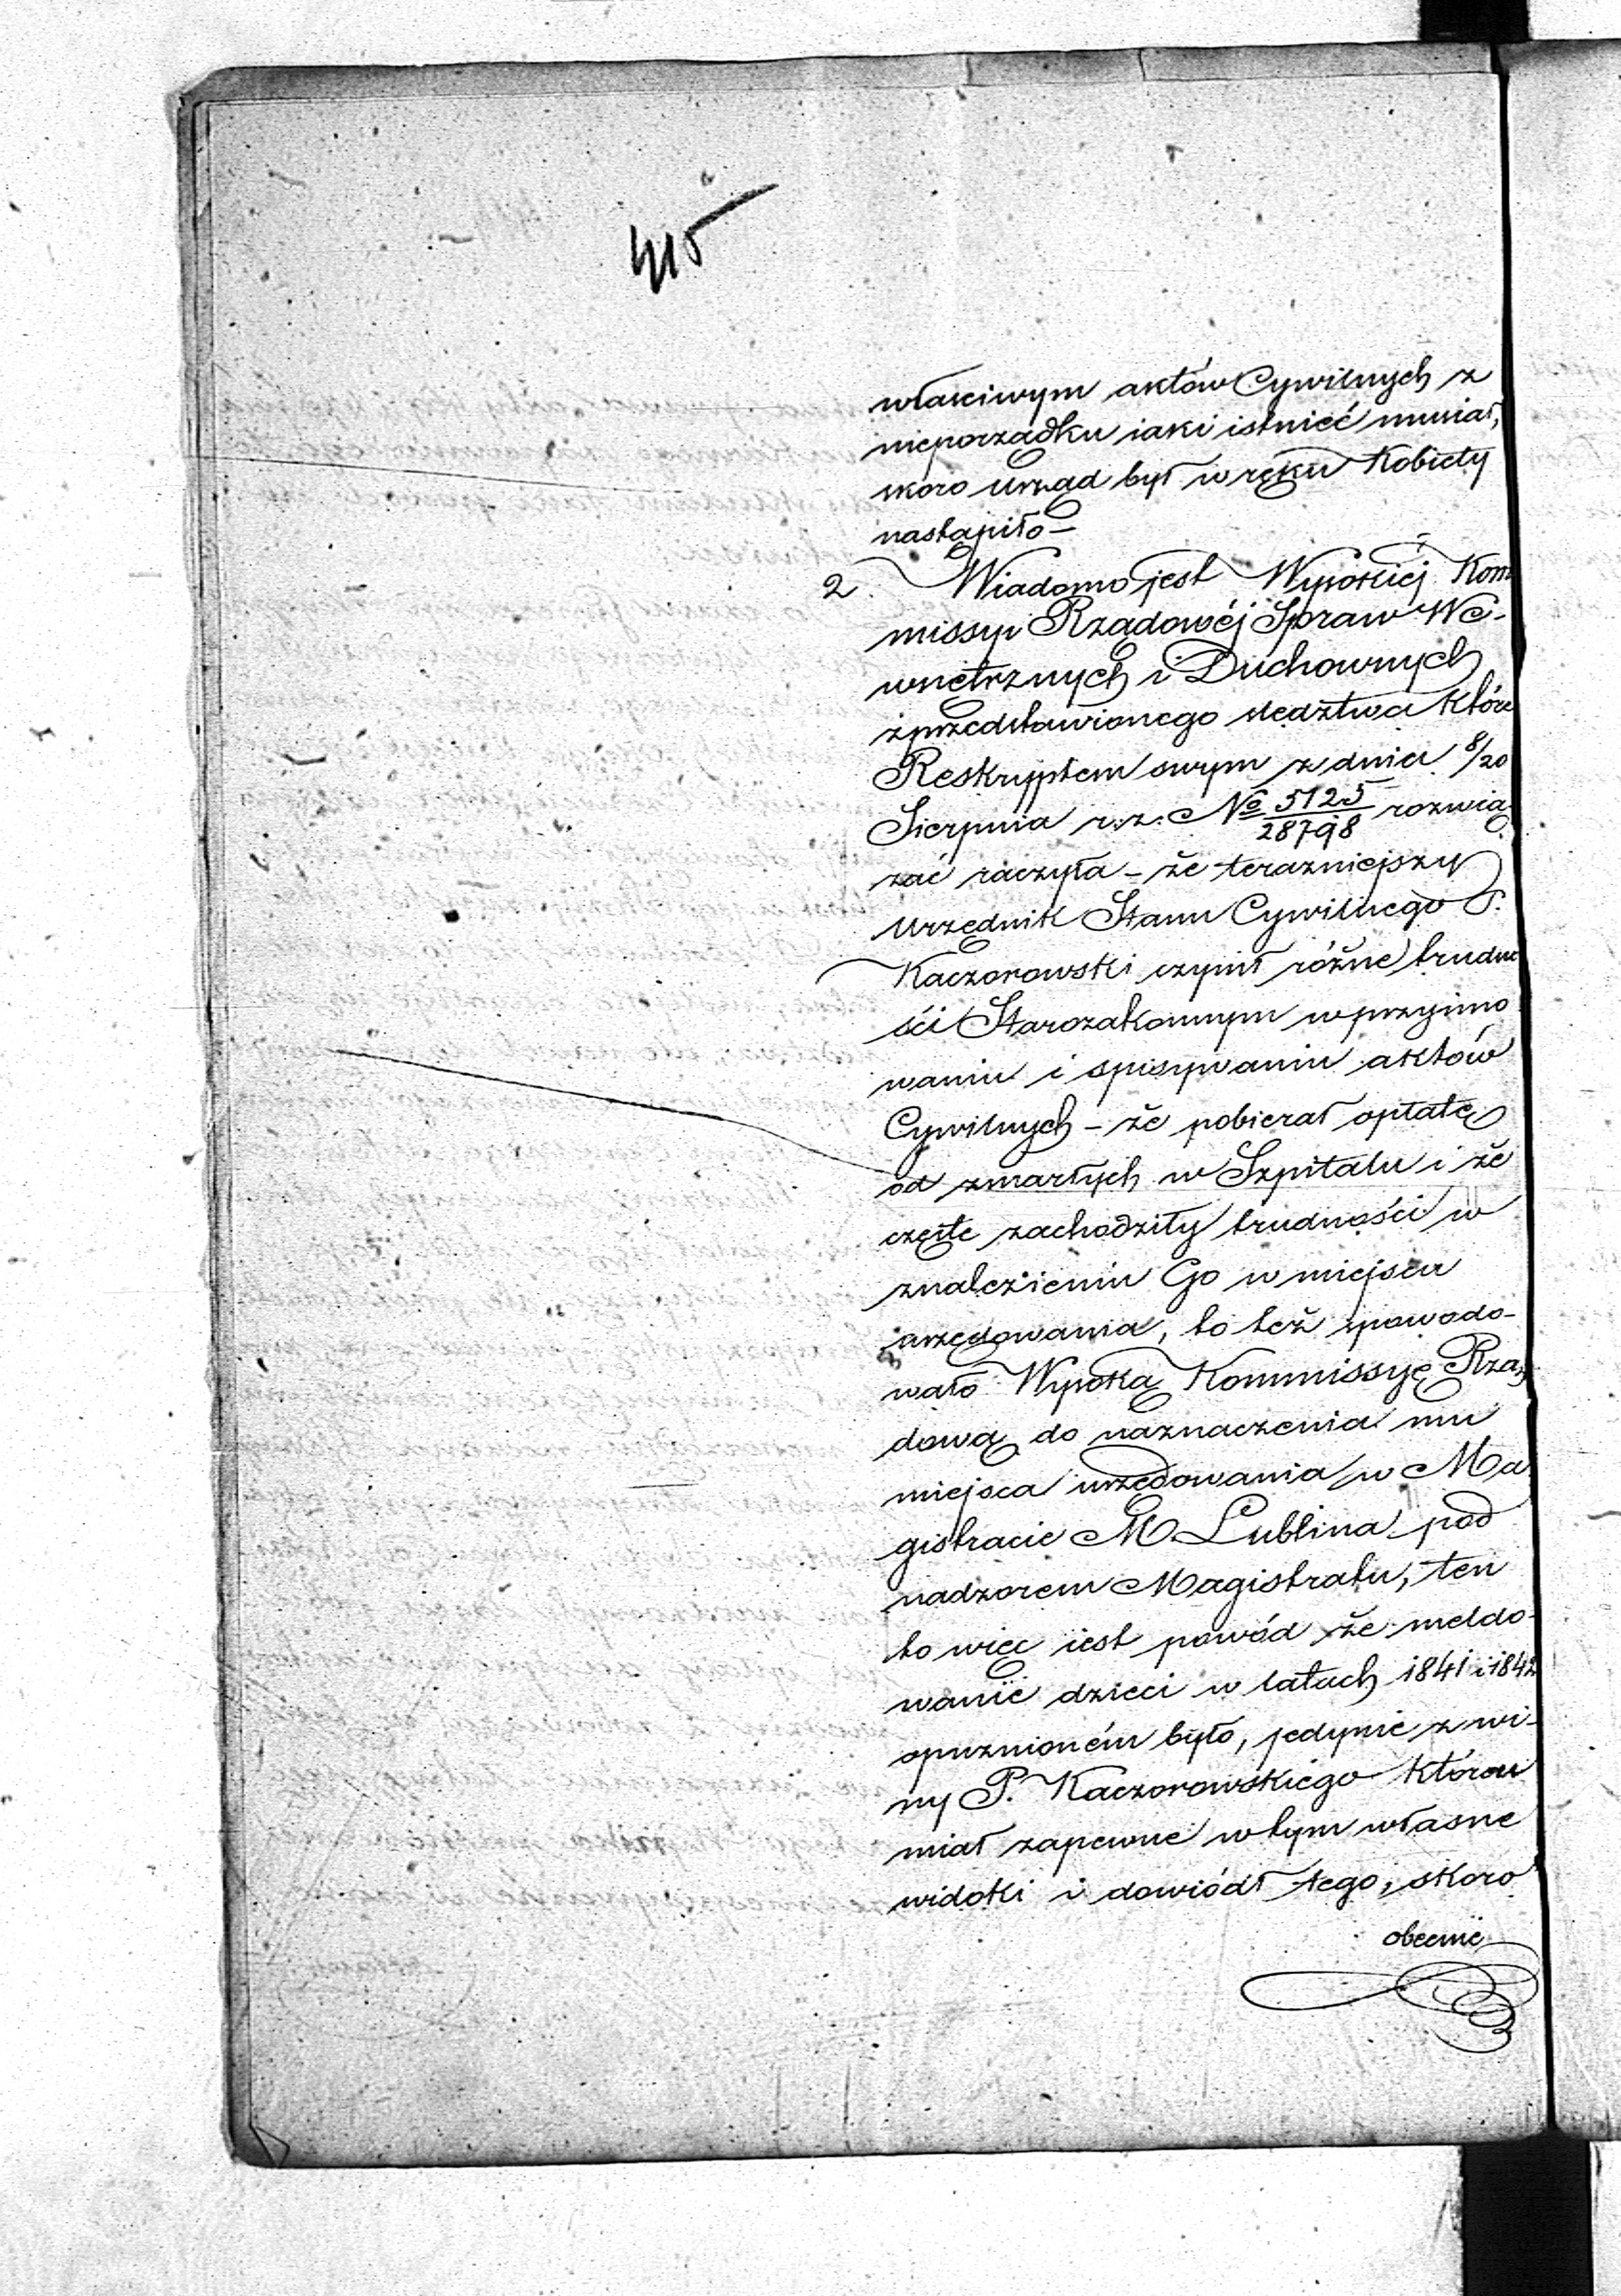 415
właściwym aktów Cywilnych z
nieporządku iaki istnieć musiał,
skoro Urząd był w ręku Kobiety
nastąpiło –
2. Wiadomo jest Wysokiéj Kom
missyi Rządowéj Spraw We-
wnętrznych i Duchownych
z przedstawionego sledztwa które
Reskryptem swym z dnia 8/20
Sierpnia r. z. No 5125/28798 rozwią
zać raczyła – że terazniejszy
Urzędnik Stanu Cywilnego P.
Kaczorowski czynił różne trudno
ści Starozakonnym w przyimo
waniu i spisywaniu aktów
Cywilnych – że pobierał opłatę
od zmarłych w Szpitalu i że
częste zachodziły trudności w
znalezieniu Go w miejscu
urzędowania, to też spowodo-
wało Wysoką Kommissyę Rzą
dową do naznaczenia mu
miejsca urzędowania w Ma
gistracie M. Lublina pod
nadzorem Magistratu, ten
to więc iest powód że meldo-
wanie dzieci w latach 1841 i 1842
opuznioném było, jedynie z wi-
ny P. Kaczorowskiego który
miał zapewne w tym własne
widoki i dowiódł tego, skoro
obecnie